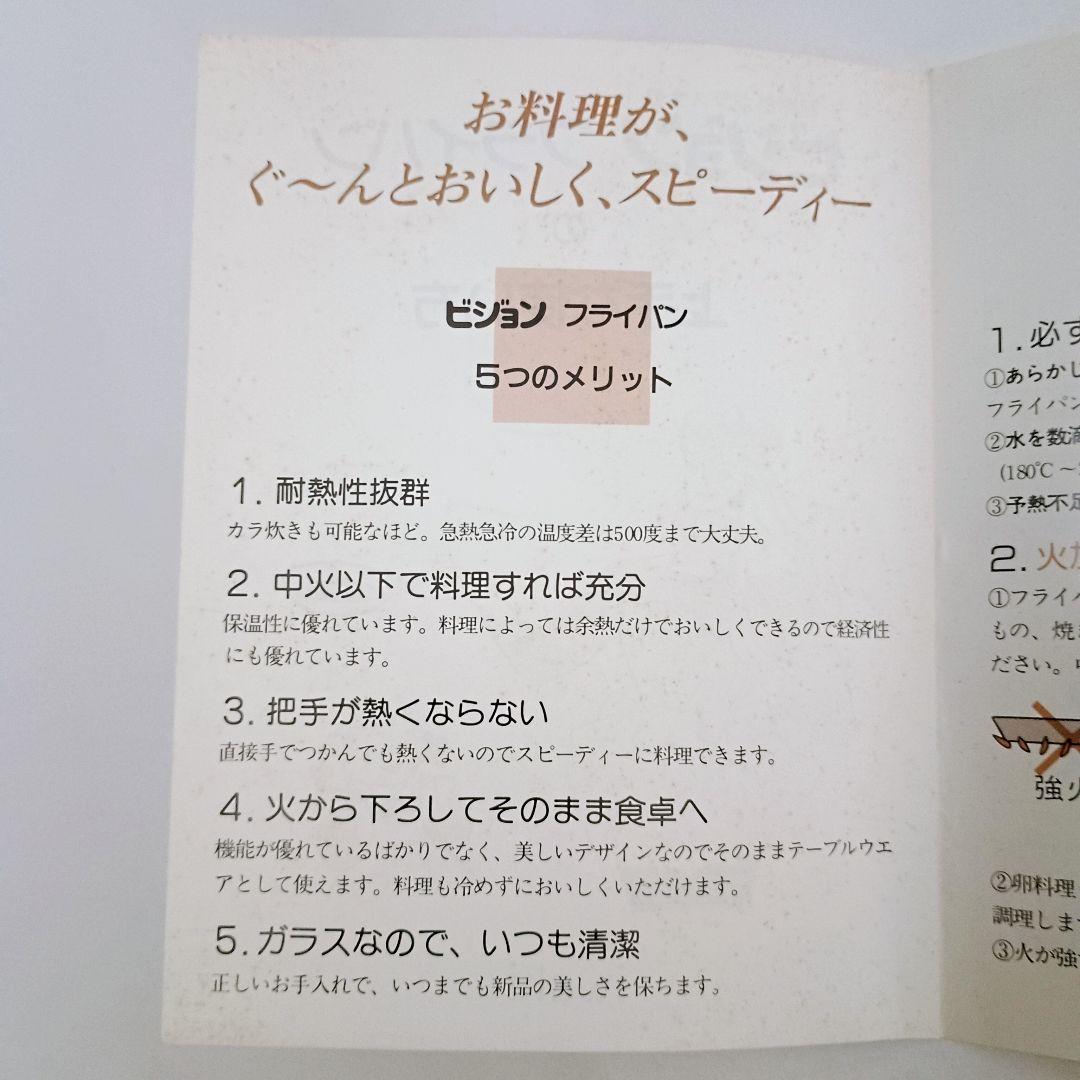 お料理が、
ぐ〜んとおいしく、スピーディー
ビジョン フライパン
5つのメリット
1. 耐熱性抜群
カラ炊きも可能なほど。急熱急冷の温度差は500度まで大丈夫。
2. 中火以下で料理すれば充分
保温性に優れています。料理によっては余熱だけでおいしくできるので経済性
にも優れています。
3. 把手が熱くならない
直接手でつかんでも熱くないのでスピーディーに料理できます。
4. 火から下ろしてそのまま食卓へ
機能が優れているばかりでなく、美しいデザインなのでそのままテーブルウエ
アとして使えます。料理も冷めずにおいしくいただけます。
5. ガラスなので、いつも清潔
正しいお手入れで、いつまでも新品の美しさを保ちます。
1. 必ず
①あらかじ
フライパン
②水を数滴
(180℃〜
③予熱不足
2. 火か
①フライパ
もの、焼
ださい。
強火
②卵料理
調理しま
③火が強